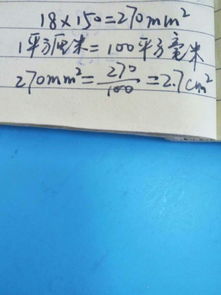 18×150=270mm²
1平方厘米=100平方毫米
270mm²=270/100=2.7cm²